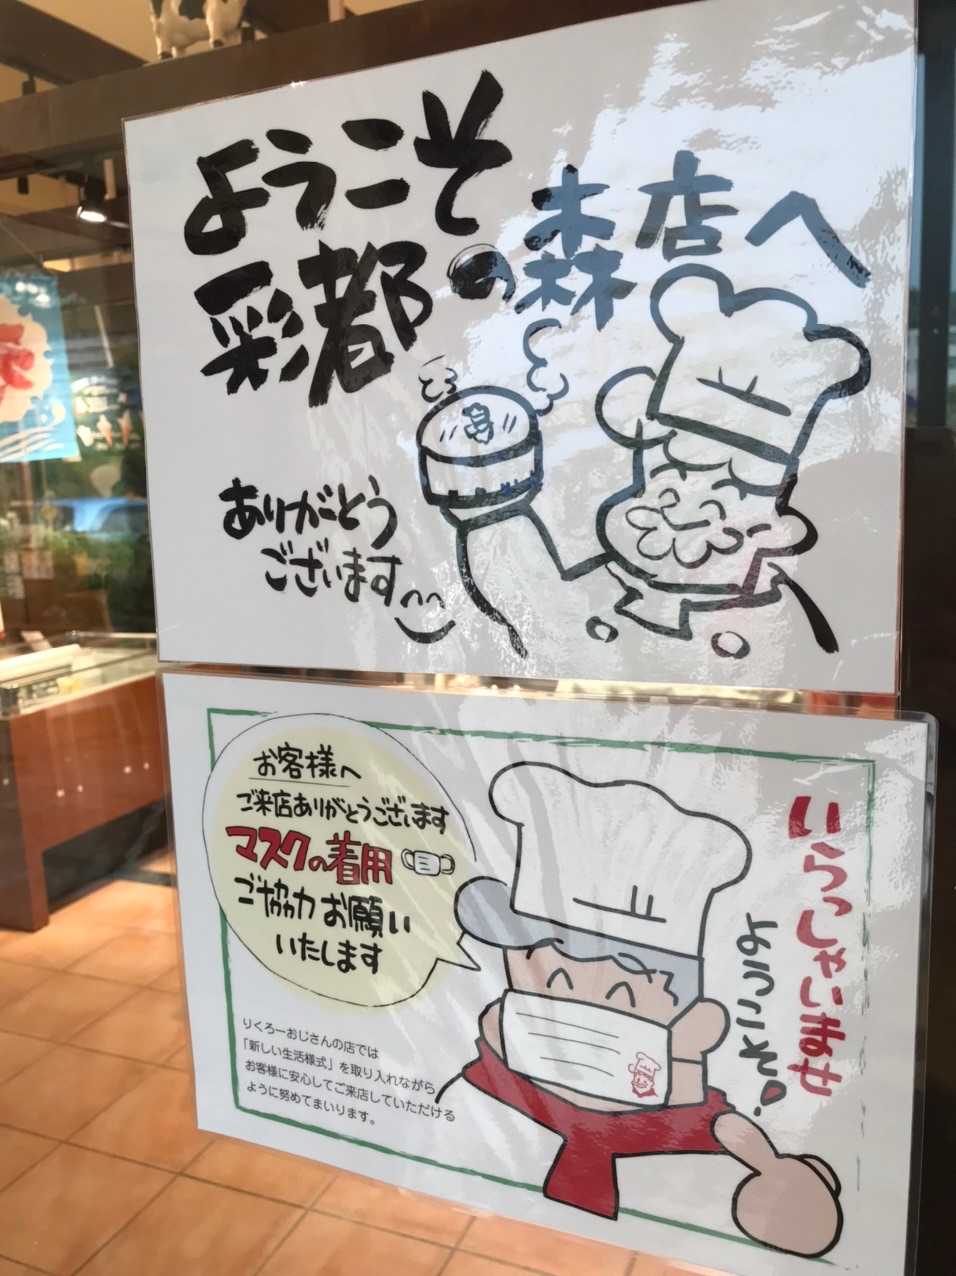 ようこそ
彩都の森店へ
ありがとう
ございます
お客様へ
ご来店ありがとうございます
マスクの着用
ご協力お願い
いたします
いらっしゃいませ
ようこそ!
りくろーおじさんの店では
「新しい生活様式」を取り入れながら
お客様に安心してご来店していただける
ように努めてまいります。